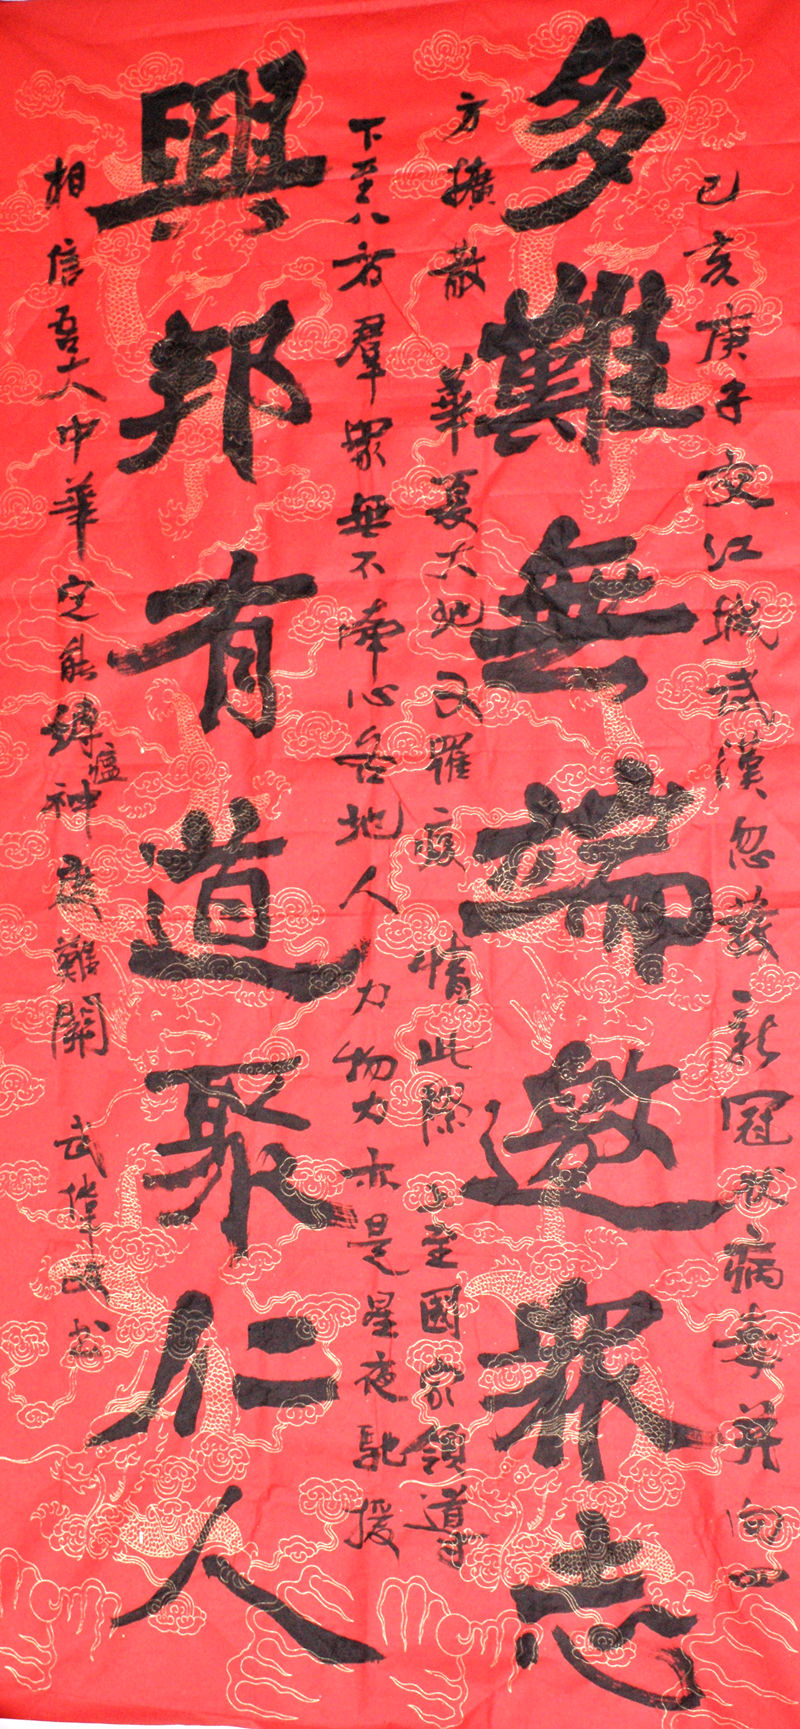 己亥庚子交江城武漢忽發新冠狀病毒并向一
多難無端邀衆志
方擴散華夏大地又罹疫情此際上至國家領導
下至八方羣衆無不牽心各地人力物力亦是星夜馳援
興邦有道聚仁人
相信吾大中華定能縛瘟神度難關 武偉書